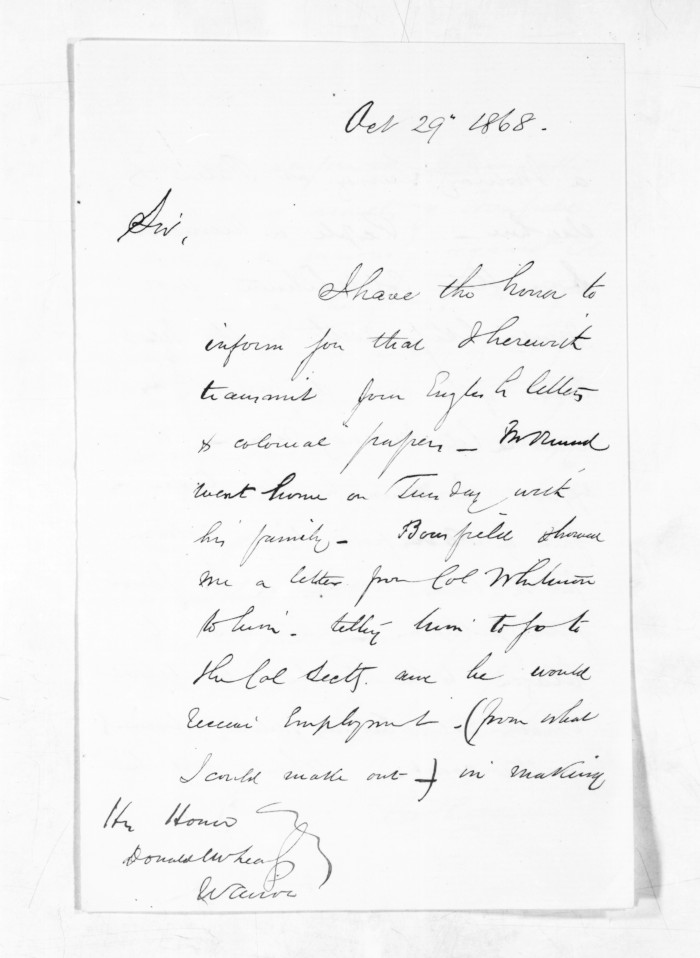 Oct 29th 1868.
Sir,
I have the honor to
inform you that I herewith
transmit your English letters
& colonial papers –
went home on Tuesday with
his family – Bousfield showed
me a letter from Col Whitmore
to him – telling him to go to
the Col Secty. and he would
receive Employment – (from what
I could make out –) in making
His Honor
Donald McLean
Wairoa